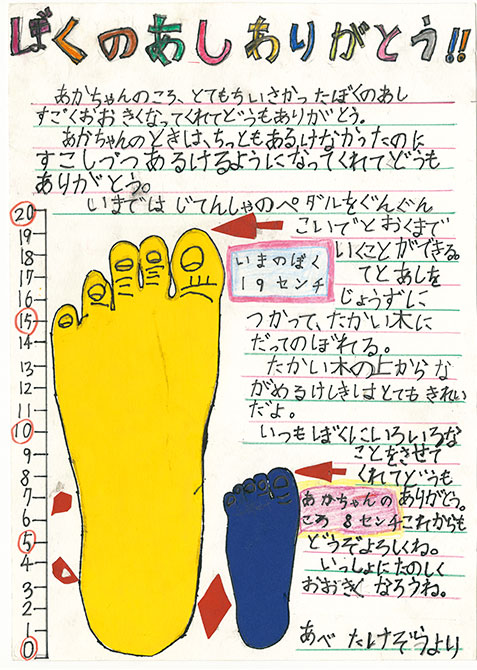 ぼくのあしありがとう!!
あかちゃんのころ、とてもちいさかったぼくのあし
すごくおおきくなってくれてどうもありがとう。
あかちゃんのときは、ちっともあるけなかったのに
すこしづつあるけるようになってくれてどうも
ありがとう。
いまではじてんしゃのペダルをぐんぐん
こいでとおくまで
いくことができる。
てとあしを
じょうずに
つかって、たかい木に
だってのぼれる。
たかい木の上からな
がめるけしきはとてもきれい
だよ。
いつもぼくにいろいろな
ことをさせて
くれてどうも
ありがとう。
これからも
どうぞよろしくね。
いっしょにたのしく
おおきくなろうね。
あべ たけぞうより
いまのぼく
19センチ
あかちゃんの
ころ 8センチ
20
19
18
17
16
15
14
13
12
11
10
9
8
7
6
5
4
3
2
1
0